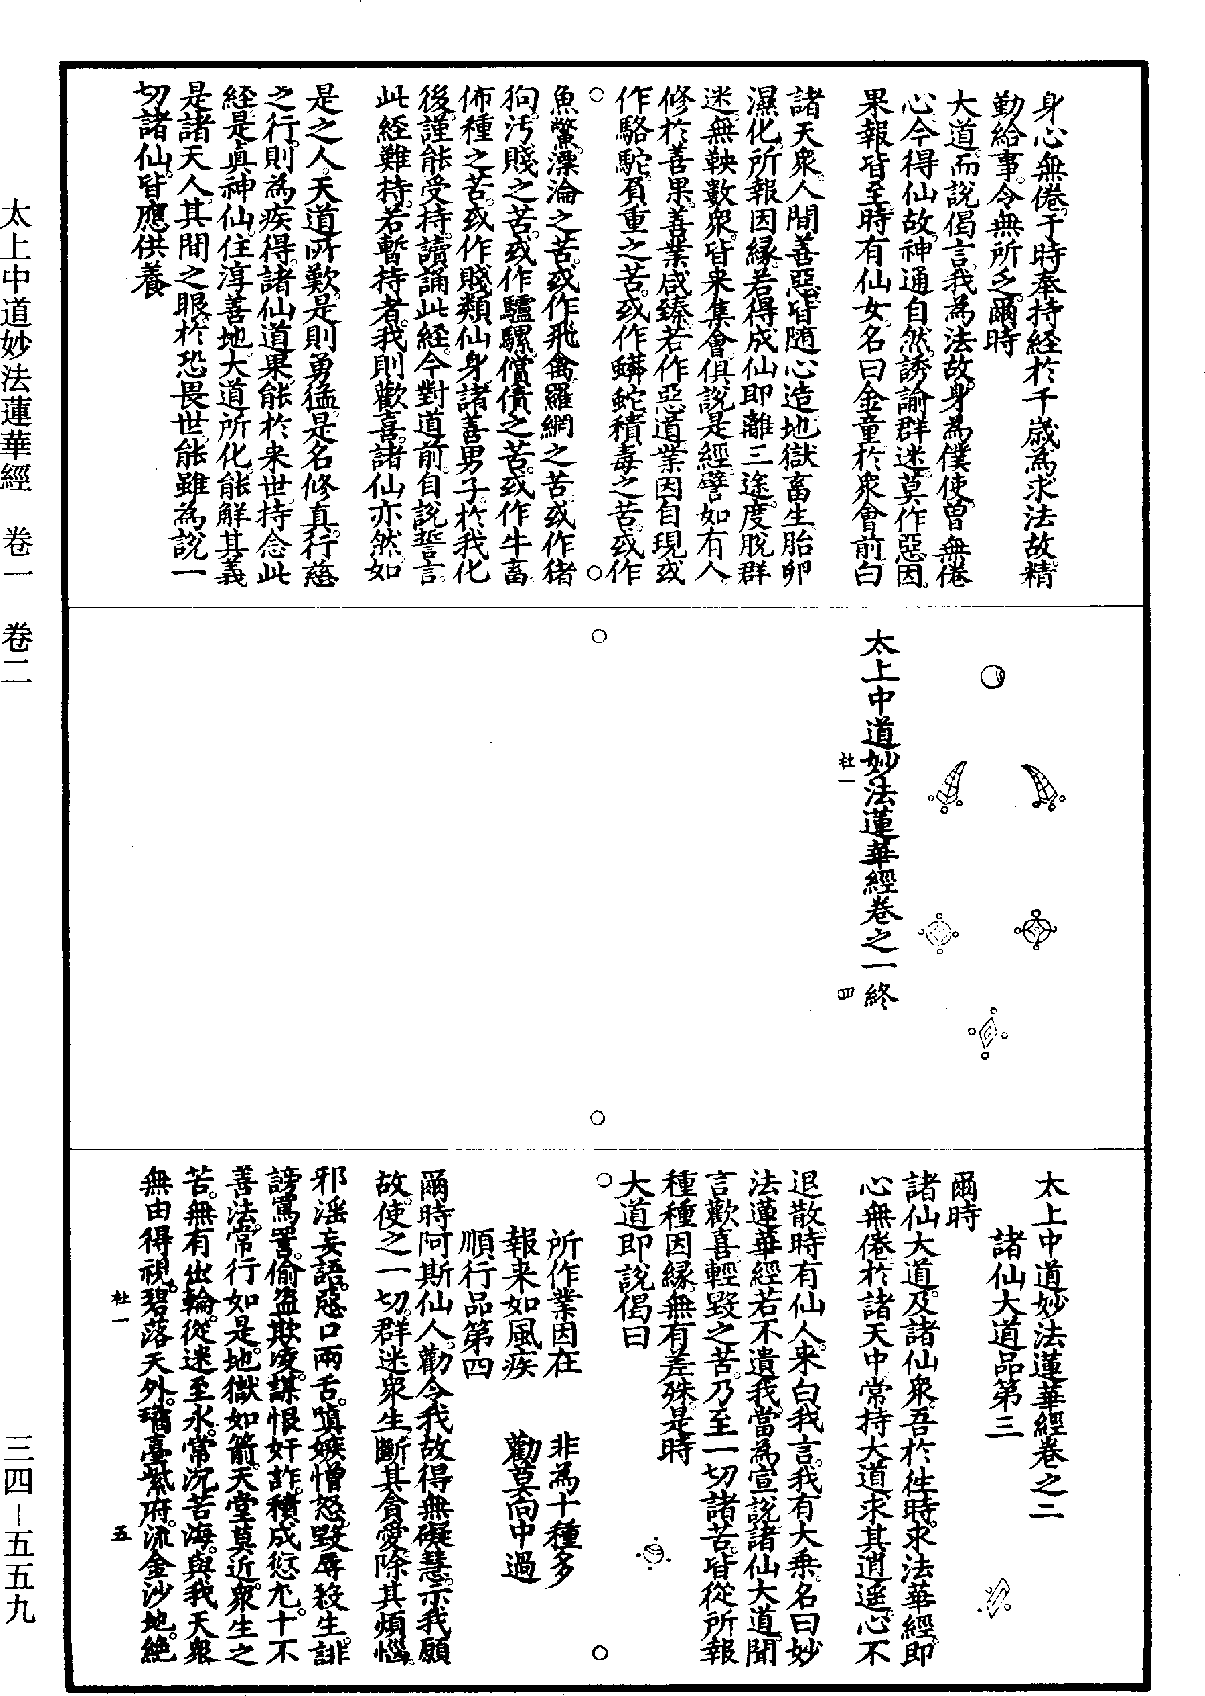 身心無倦于時奉持經於千歲為求法故精
勤給事令無所乏爾時
大道而說偈言我為法故身為僕使曾無倦
心今得仙故神通自然誘諭群迷莫作惡因
果報皆至時有仙女名曰金童於眾會前白
諸天眾人間善惡皆隨心造地獄畜生胎卵
濕化所報因緣若得成仙即離三途度脫群
迷無鞅數眾皆来集會俱說是經譬如有人
修於善果善業咸臻若作惡道業因自現或
作駱駝負重之苦或作蟒蛇積毒之苦或作
魚鱉漂淪之苦或作飛禽羅網之苦或作猪
狗污賤之苦或作驢騾償債之苦或作牛畜
佈種之苦或作賤類仙身諸善男子於我化
後謹能受持讀誦此經今對道前自說誓言
此經難持若暫持者我則歡喜諸仙亦然如
是之人天道所歎是則勇猛是名修真行蔭
之行則為疾得諸仙道果能於来世持念此
經是真神仙住淳善地大道所化能解其義
是諸天人其間之眼於恐畏世能雖為說一
切諸仙皆應供養
太上中道妙法蓮華經卷之一終
杜一 四
太上中道妙法蓮華經卷之二
諸仙大道品第三
爾時
諸仙大道及諸仙眾吾於徃時求法華經即
心無倦於諸天中常持大道求其逍遥心不
退散時有仙人来白我言我有大乘名曰妙
法蓮華經若不遺我當為宣說諸仙大道聞
言歡喜輕毀之苦乃至一切諸苦皆從所報
種種因緣無有差殊是時
大道即說偈曰
所作業因在 非為十種多
報来如風疾 勸莫向中過
順行品第四
爾時阿斯仙人勸令我故得無礙慧示我願
故使之一切群迷眾生斷其貪愛除其煩惱
邪淫妄語惡口兩舌嗔嫉憎怒毀辱殺生誹
謗罵詈偷盜欺凌謀恨奸詐積成愆尤十不
善法常行如是地獄如箭天堂莫近眾生之
苦無有出輪從迷至永常沉苦海與我天眾
無由得視碧落天外瓊臺紫府流金沙地絶
杜一 五
太上中道妙法蓮華經 卷一 卷二
三四－五五九